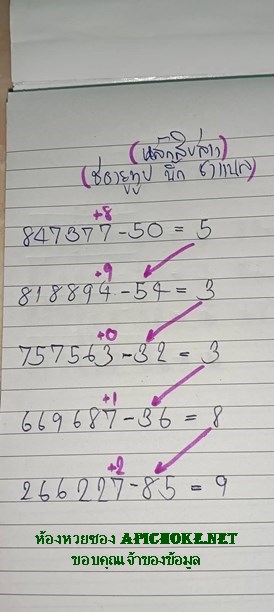 (หลักสิบล่าง)
+8
847377-50=5
+9
818894-54=3
+0
757563-32=3
+1
669687-36=8
+2
266227-85=9
ห้องหวยซอง APICHOKE.NET
ขอบคุณเจ้าของข้อมูล